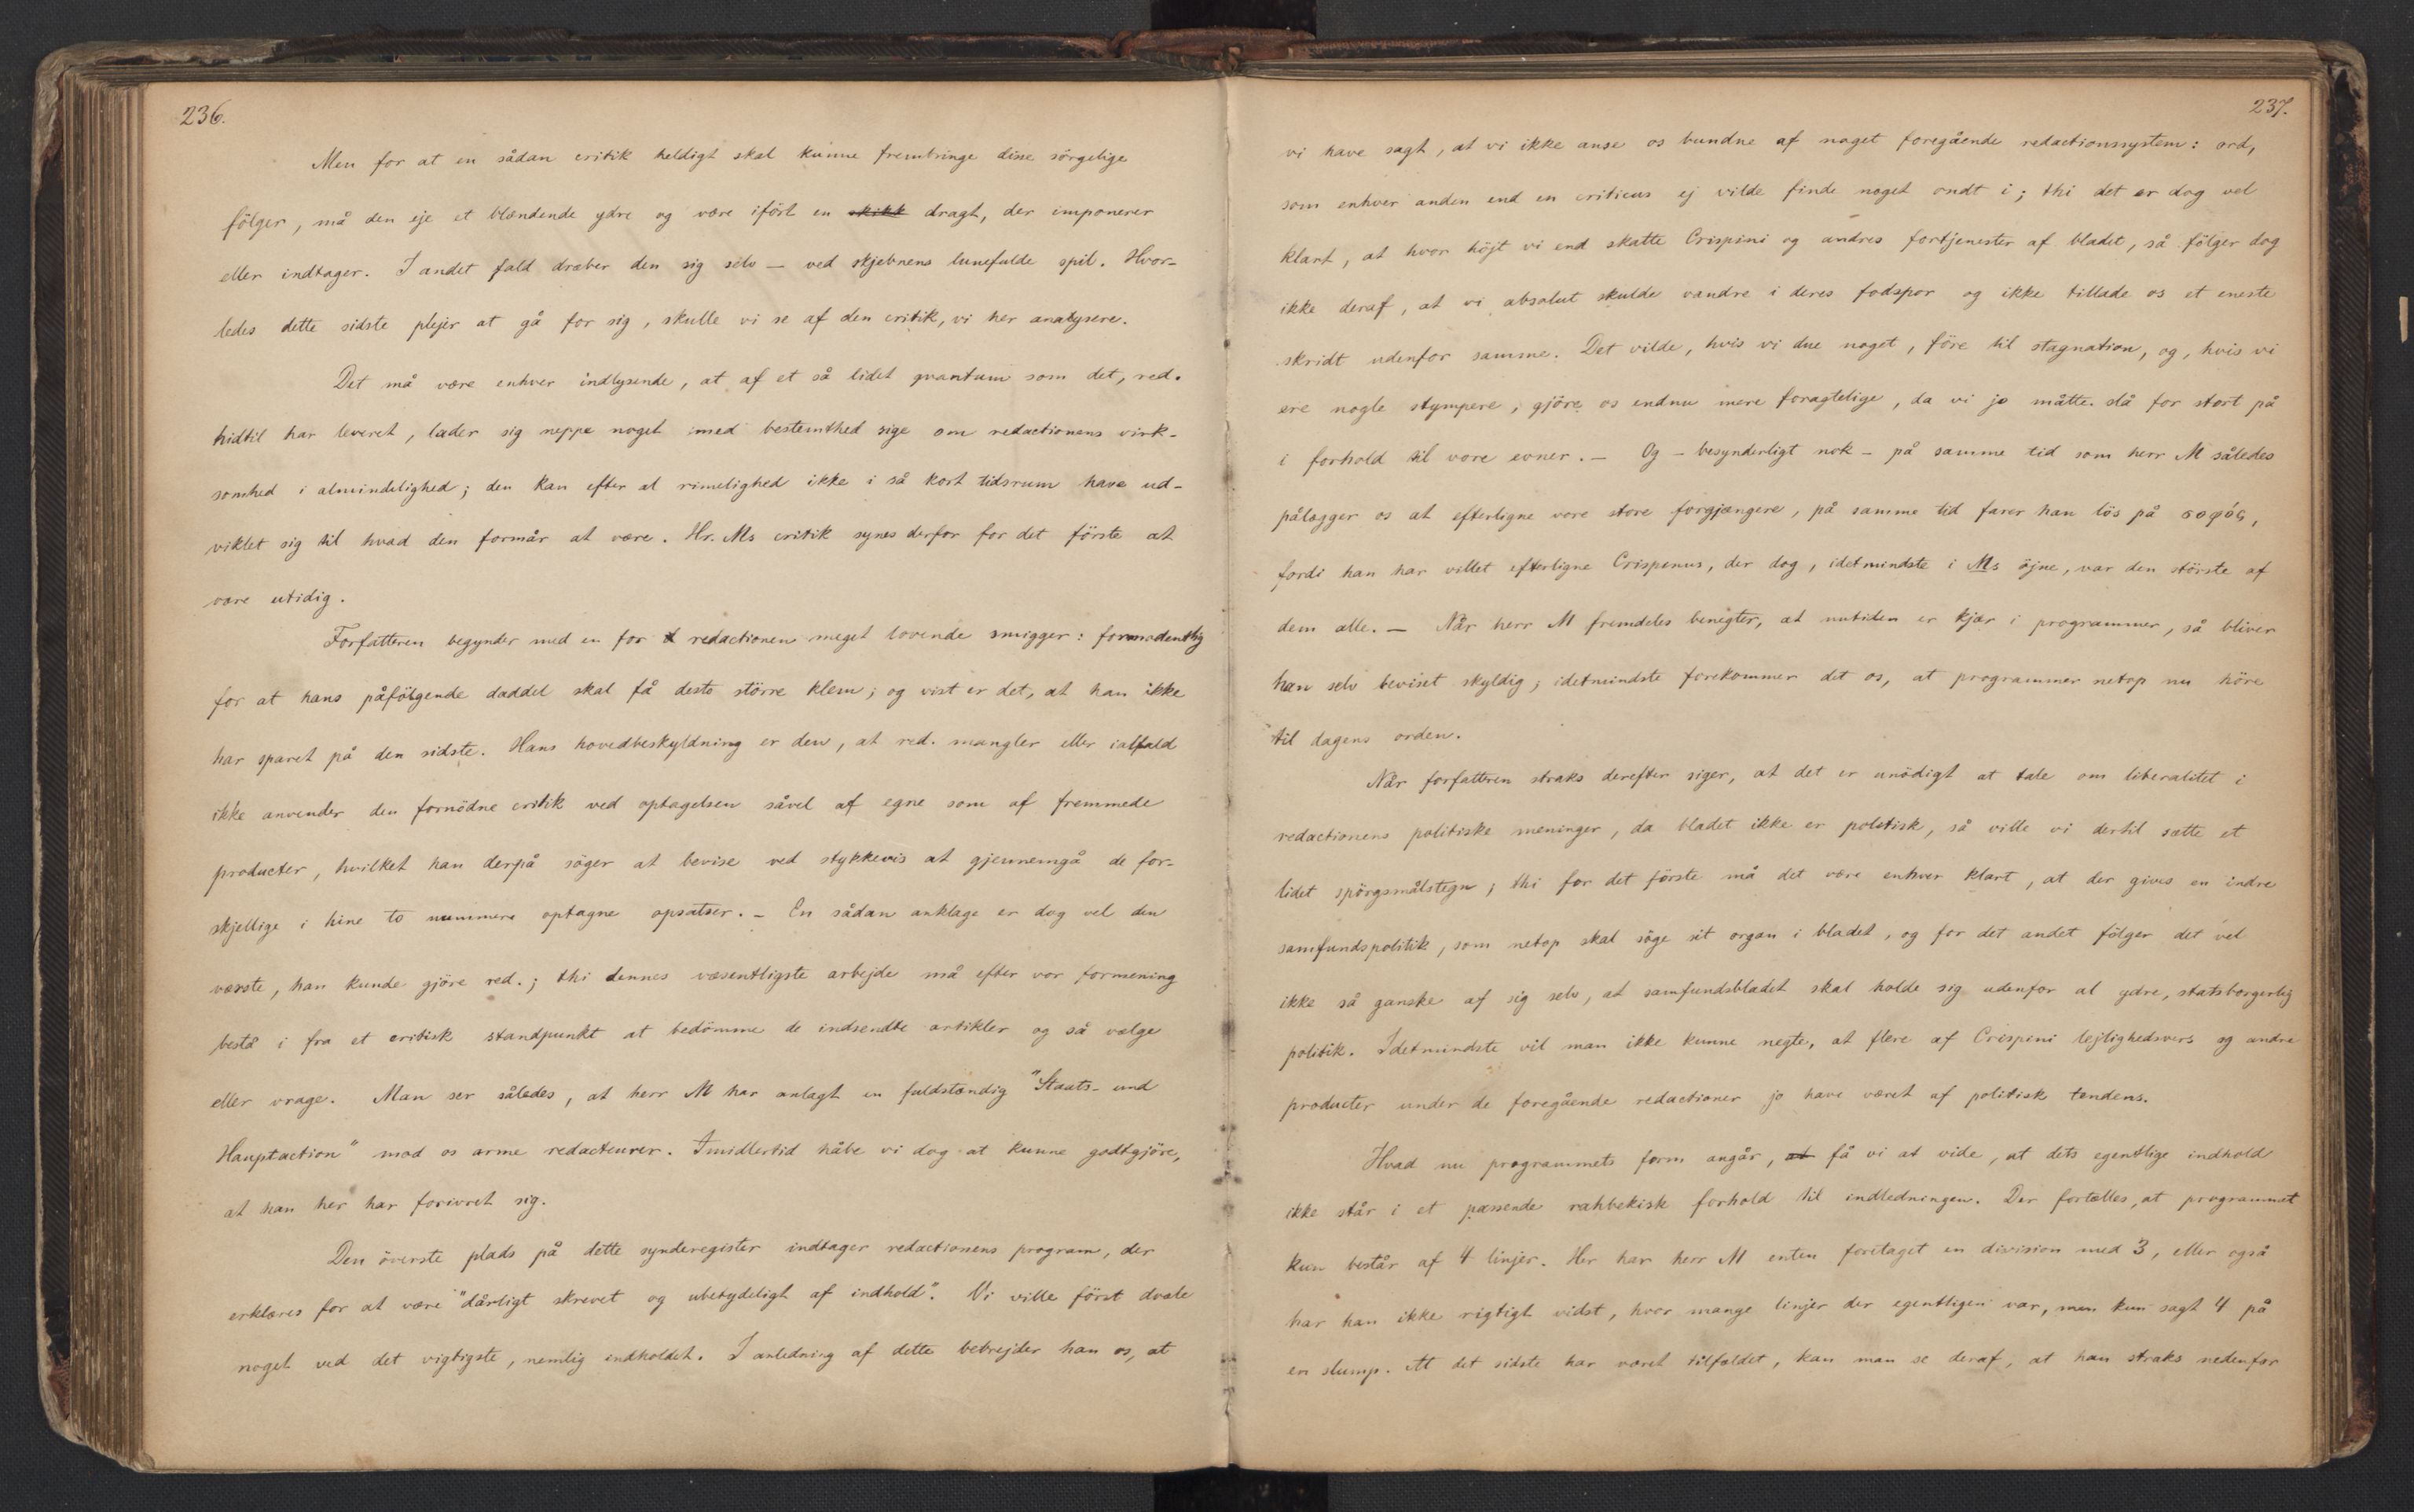 236.
Men for at en sådan critik heldigt skal kunne frembringe disse sörgelige
fölger, må den eje et blændende ydre og være ifört en skikk dragt, der imponerer
eller indtager. I andet fald dræber den sig selv – ved skjebnens lunefulde spil. Hvor-
ledes dette sidste plejer at gå for sig, skulle vi se af den critik, vi her analysere.
Det må være enhver indlysende, at af et så lidet qvantum som det, red.
hidtil har leveret, lader sig neppe noget med bestemthed sige om redactionens virk-
somhed i almindelighed; den kan efter al rimelighed ikke i så kort tidsrum have ud-
viklet sig til hvad den formår at være. Hr. Ms critik synes derfor for det förste at
være utidig.
Forfatteren begynder med en for redactionen meget lovende smigger: formodentlig
for at hans påfölgende daddel skal få desto större klem; og vist er det, at han ikke
har sparet på den sidste. Hans hovedbeskyldning er den, at red. mangler eller ialfald
ikke anvender den fornödne critik ved optagelsen såvel af egne som af fremmede
producter, hvilket han derpå söger at bevise ved stykkevis at gjennemgå de for-
skjellige i hine to nummere optagne opsatser. – En sådan anklage er dog vel den
værste, han kunde gjöre red.; thi dennes væsentligste arbejde må efter vor formening
bestå i fra et critisk standpunkt at bedömme de indsendte artikler og så vælge
eller vrage. Man ser således, at herr M har anlagt en fuldstændig "Staats- und
Hauptaction" mod os arme redacteurer. Imidlertid håbe vi dog at kunne godtgjöre,
at han her har forivret sig.
Den överste plads på dette synderegister indtager redactionens program, der
erklæres for at være "dårligt skrevet og ubetydeligt af indhold". Vi ville först dvæle
noget ved det vigtigste, nemlig indholdet. I anledning af dette bebrejder han os, at
237.
vi have sagt, at vi ikke anse os bundne af noget foregående redactionssystem: ord,
som enhver anden end en criticus ej vilde finde noget ondt i; thi det er dog vel
klart, at hvor höjt vi end skatte Crispini og andres fortjenester af bladet, så fölger dog
ikke deraf, at vi absolut skulde vandre i deres fodspor og ikke tillade os et eneste
skridt udenfor samme. Det vilde, hvis vi due noget, före til stagnation, og, hvis vi
ere nogle stympere, gjöre os endnu mere foragtelige, da vi jo måtte slå for stort på
i forhold til vore evner. – Og – besynderligt nok – på samme tid som herr M således
pålægger os at efterligne vore store forgjængere, på samme tid farer han lös på σοφός,
fordi han har villet efterligne Crispenus, der dog, idetmindste i Ms öjne, var den störste af
dem alle. – Når herr M fremdeles benegter, at nutiden er kjær i programmer, så bliver
han selv beviset skyldig; idetmindste forekommer det os, at programmer netop nu höre
til dagens orden.
Når forfatteren straks derefter siger, at det er unödigt at tale om liberalitet i
redactionens politiske meninger, da bladet ikke er politisk, så ville vi dertil sætte et
lidet spörgsmålstegn; thi for det förste må det være enhver klart, at der gives en indre
samfundspolitik, som netop skal söge sit organ i bladet, og for det andet fölger det vel
ikke så ganske af sig selv, at samfundsbladet skal holde sig udenfor al ydre, statsborgerlig
politik. Idetmindste vil man ikke kunne negte, at flere af Crispini lejlighedsvers og andre
producter under de foregående redactioner jo have været af politisk tendens.
Hvad nu programmets form angår, at få vi at vide, at dets egentlige indhold
ikke står i et passende rahbekisk forhold til indledningen. Der fortælles, at programmet
kun består af 4 linjer. Her har herr M enten foretaget en division med 3, eller også
har han ikke rigtigt vidst, hvor mange linjer der egentligen var, men kun sagt 4 på
en slump. At det sidste har været tilfældet, kan man se deraf, at han straks nedenfor